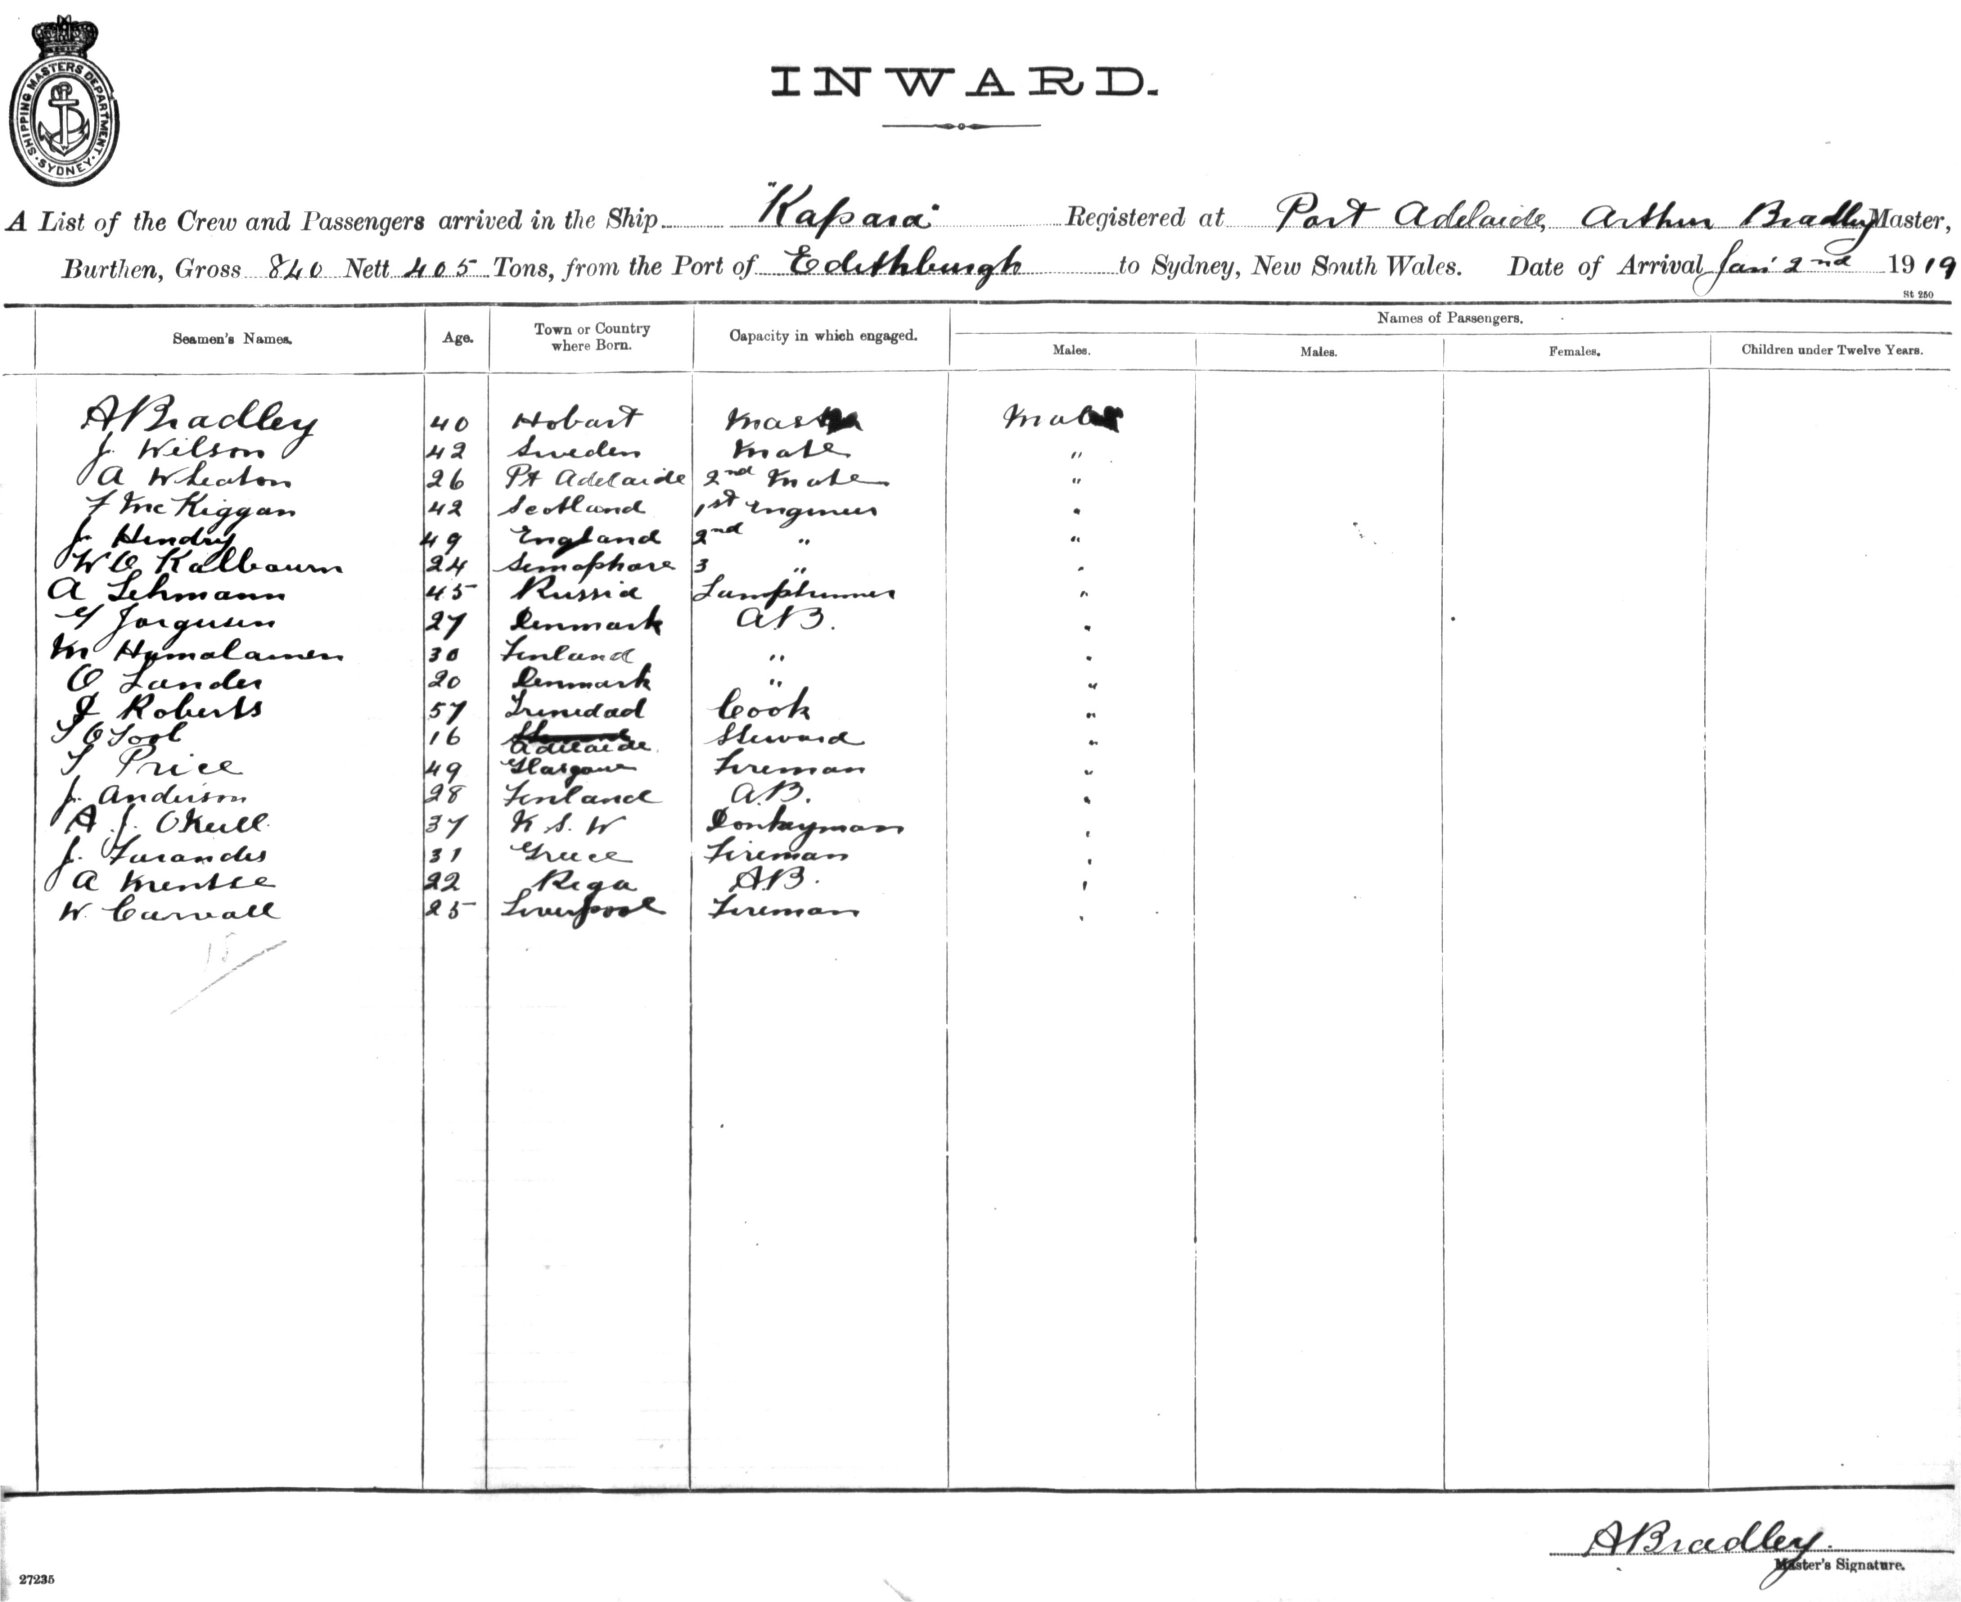 SHIPPING MASTERS DEPARTMENT
SYDNEY
INWARD.
A List of the Crew and Passengers arrived in the Ship "Kapara" Registered at Port Adelaide, Arthur Bradley Master,
Burthen, Gross 840 Nett 405 Tons, from the Port of Edithburgh to Sydney, New South Wales. Date of Arrival Jan 2nd 1919
St 250
Seamen's Names. Age. Town or Country where Born. Capacity in which engaged. Names of Passengers.
Males. Males. Females. Children under Twelve Years.
A Bradley 40 Hobart Master Males
J. Wilson 42 Sweden Mate "
A Wheaton 26 Pt Adelaide 2nd Mate "
F McKiggan 42 Scotland 1st Engineer "
J. Hendry 49 England 2nd " "
W O Kalbourn 24 Semaphore 3 " "
A Lehmann 45 Russia Lamptrimmer "
27 Denmark A.B. "
M Hamalainen 30 Finland " "
O Lander 20 Denmark " "
J Roberts 57 Trinedad Cook "
T O Tool 16 Adelaide Steward "
T Price 49 Glasgow Fireman "
J. Anderson 28 Finland A.B. "
A J. OKeill 37 N S. W Donkeyman "
J. 31 Greece Fireman "
A Mentse 22 Riga A.B. "
W. Carvall 25 Liverpool Fireman "
A Bradley.
Master's Signature.
27235